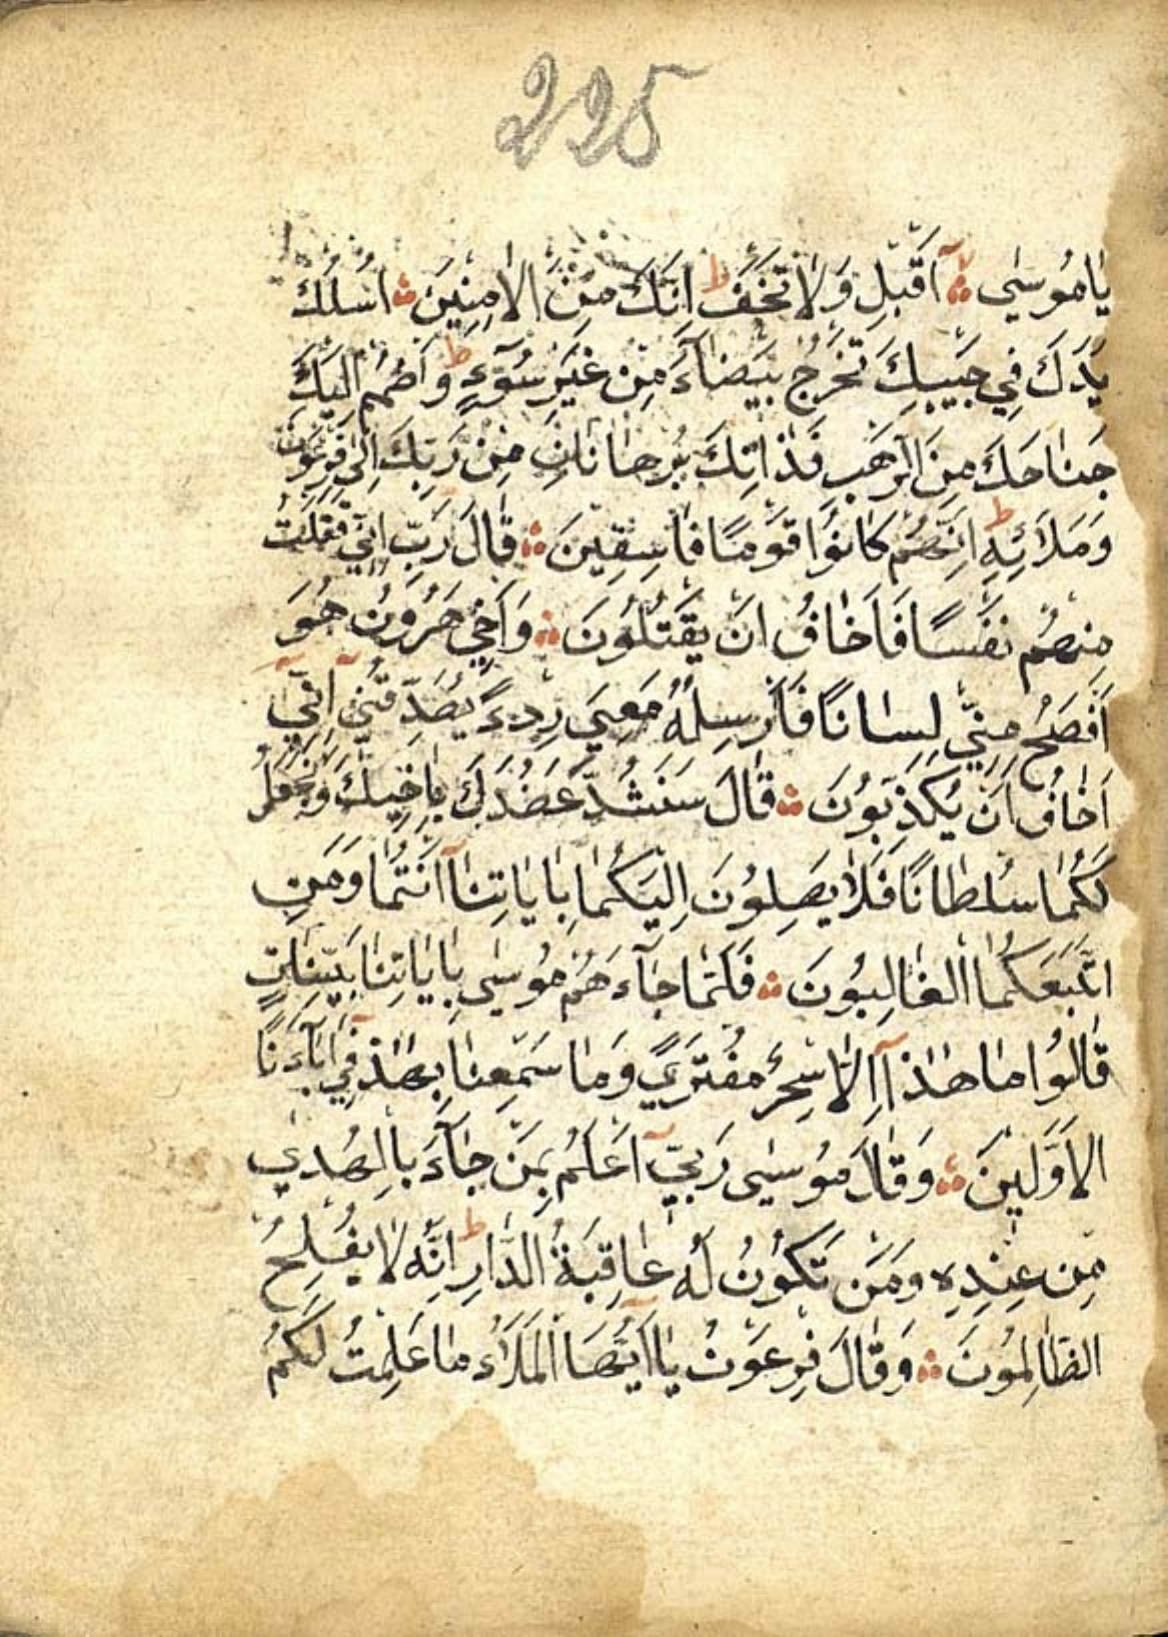 225
يَامُوسٰى اَقْبِلْ وَلَا تَخَفْ ط اِنَّكَ مِنَ الْاٰمِنِينَ اُسْلُكْ
يَدَكَ فِي جَيْبِكَ تَخْرُجْ بَيْضَآءَ مِنْ غَيْرِ سُوٓءٍ ط وَاضْمُمْ اِلَيْكَ
جَنَاحَكَ مِنَ الرَّهْبِ فَذَانِكَ بُرْهَانَانِ مِنْ رَبِّكَ اِلٰى فِرْعَوْنَ
وَمَلَائِهِ ط اِنَّهُمْ كَانُوا قَوْمًا فَاسِقِينَ قَالَ رَبِّ اِنِّي قَتَلْتُ
مِنْهُمْ نَفْسًا فَاَخَافُ اَنْ يَقْتُلُونَ وَاَخِي هَرُونُ هُوَ
اَفْصَحُ مِنِّي لِسَانًا فَاَرْسِلْهُ مَعِيَ رِدْءً يُصَدِّقُنِي اِنِّيٓ
اَخَافُ اَنْ يُكَذِّبُونَ قَالَ سَنَشُدُّ عَضُدَكَ بِاَخِيكَ وَنَجْعَلُ
لَكُمَا سُلْطَانًا فَلَا يَصِلُونَ اِلَيْكُمَا بِاٰيَاتِنَآ اَنْتُمَا وَمَنِ
اتَّبَعَكُمَا الْغَالِبُونَ فَلَمَّا جَآءَهُمْ مُوسٰى بِاٰيَاتِنَا بَيِّنَاتٍ
قَالُوا مَا هٰذَآ اِلَّا سِحْرٌ مُفْتَرًى وَمَا سَمِعْنَا بِهٰذَا فِيٓ اٰبَآءِنَا
الْاَوَّلِينَ وَقَالَ مُوسٰى رَبِّيٓ اَعْلَمُ بِمَنْ جَآءَ بِالْهُدٰي
مِنْ عِنْدِهِ وَمَنْ تَكُونُ لَهُ عَاقِبَةُ الدَّارِ ط اِنَّهُ لَا يُفْلِحُ
الظَّالِمُونَ وَقَالَ فِرْعَوْنُ يَآاَيُّهَا الْمَلَاُء مَا عَلِمْتُ لَكُمْ